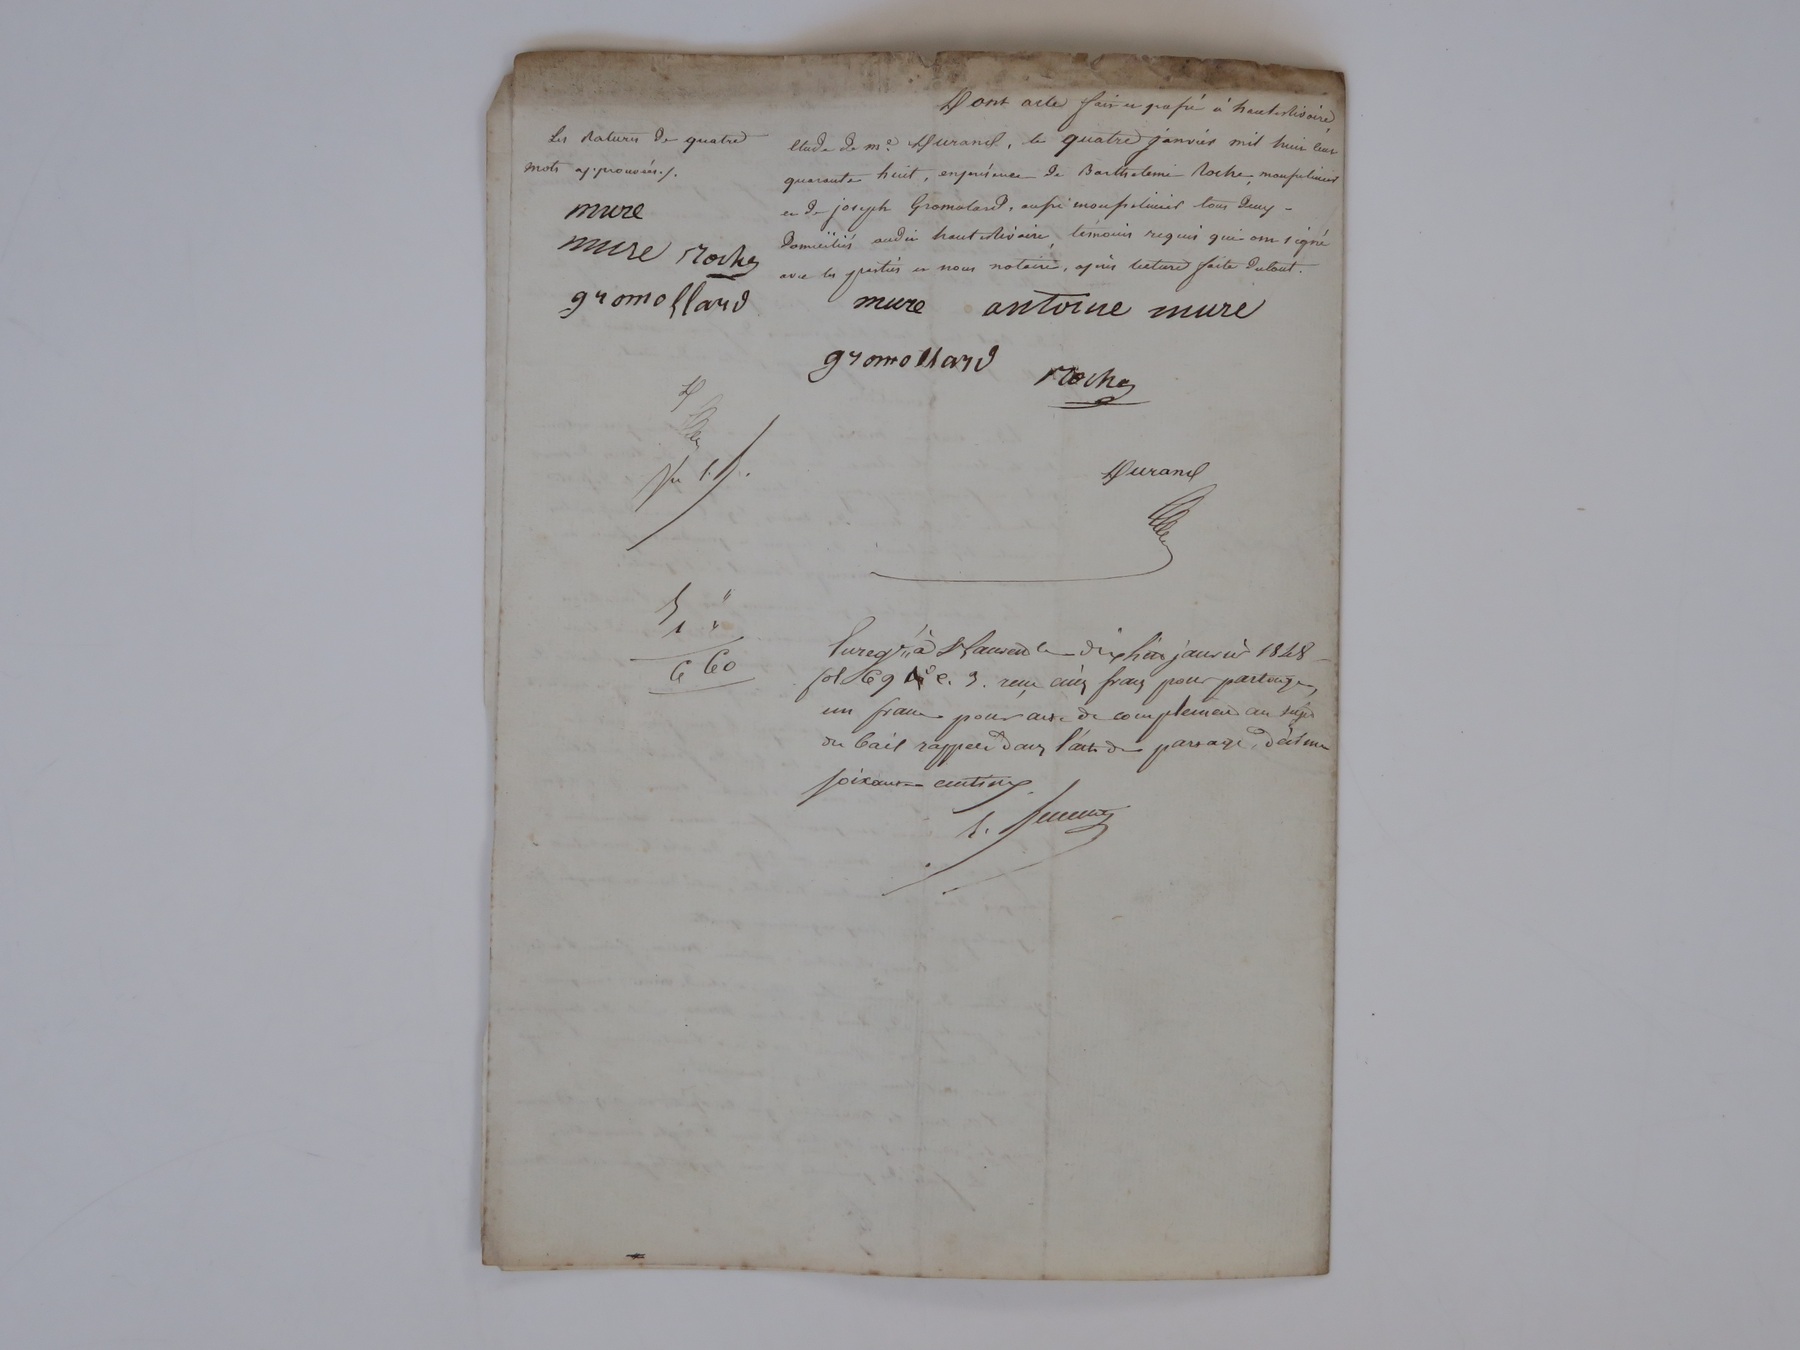 Dont acte fait et passé à hauterivoire,
étude de me. Durand, le quatre janvier mil huit cent
quarante huit, en présence de Barthelemi Roche,
et de joseph Gromolard, aussi tous deux
domiciliés audit hauterivoire, témoins requis qui ont signé
avec les parties et nous notaire, après lecture faite du tout.
Les ratures de quatre
mots approuvées./.
mure
mure Roche
gromollard
mure antoine mure
gromollard Roche
D
Durand
5 "
1 "
6 60
Enregtré à St Laurent le dix huit janvier 1848
fol 69 c. 3. reçu cinq francs pour partage,
un franc pour acte de complement au sujet
du bail rappelé dans l'acte de partage, décime
soixante centimes